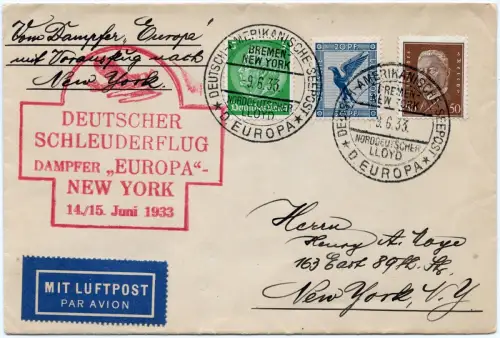 Vom Dampfer „Europa“
mit Vorausflug nach
New York.
DEUTSCHER
SCHLEUDERFLUG
DAMPFER „EUROPA“-
NEW YORK
14./15. Juni 1933
DEUTSCH-AMERIKANISCHE SEEPOST
BREMEN-
NEW YORK
9.6.33.
NORDDEUTSCHER
LLOYD
★ D. EUROPA ★
20 PF
50
DEUTSCH-AMERIKANISCHE SEEPOST
BREMEN-
NEW YORK
9.6.33.
NORDDEUTSCHER
LLOYD
★ D. EUROPA ★
Herrn
Henry A.
163 East 89th Str.
New York, N.Y.
MIT LUFTPOST
PAR AVION